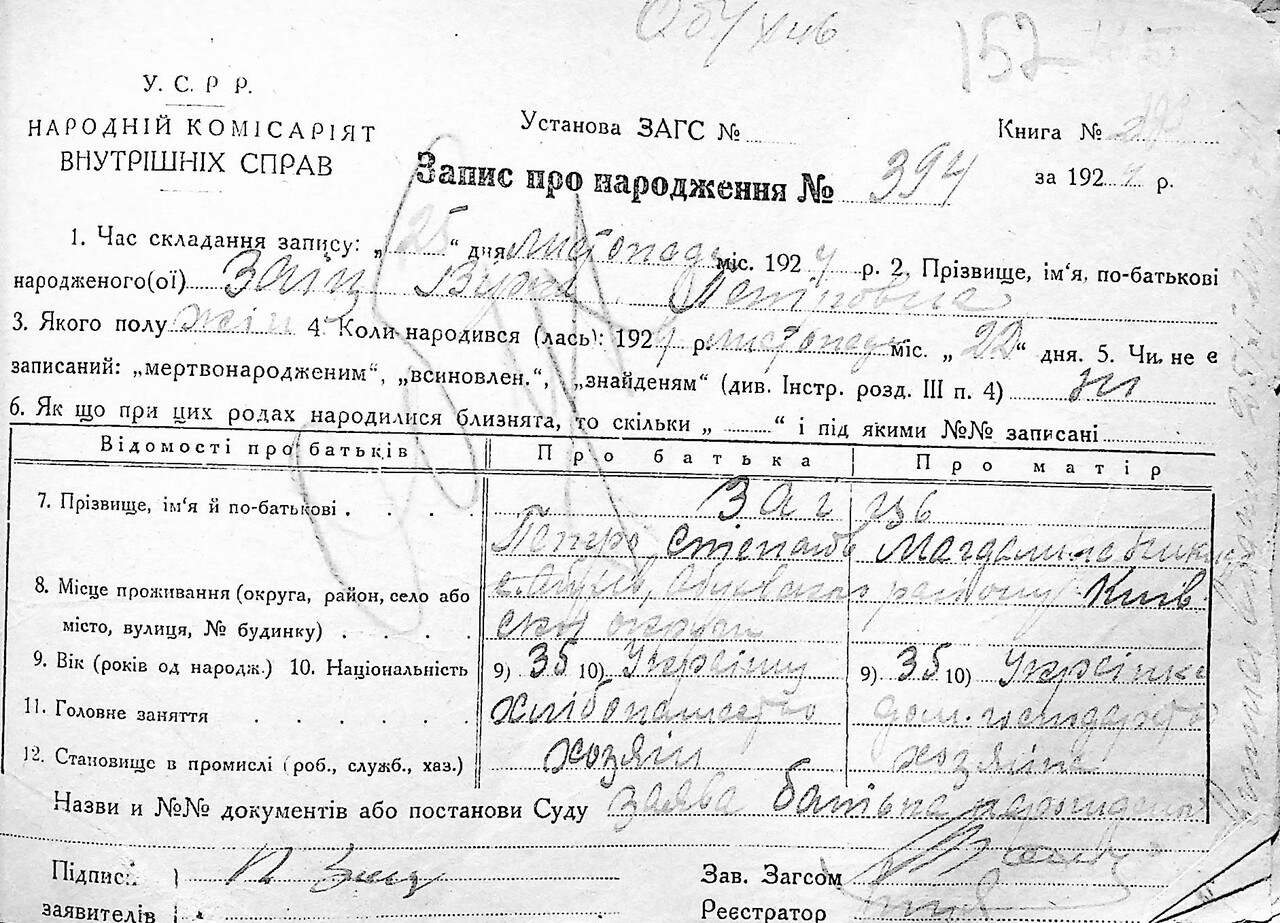 Обухів
152
У. С. Р Р.
НАРОДНІЙ КОМІСАРІЯТ
ВНУТРІШНІХ СПРАВ
Установа ЗАГС №
Книга №
Запис про народження № 394
за 192 р.
1. Час складання запису: „25“ дня листопада міс. 192 р. 2. Прізвище, ім'я, по-батькові
народженого(ої) Заїц Віра Петровна
3. Якого полу жін 4. Коли народився (лась): 192 р. листопада міс. „22“ дня. 5. Чи не є
записаний: „мертвонародженим“, „всиновлен.“, „знайденям“ (див. Інстр. розд. III п. 4) ні
6. Як що при цих родах народилися близнята, то скільки „ “ і під якими №№ записані
Відомості про батьків Про батька Про матір
7. Прізвище, ім'я й по-батькові . . . .
Петро Степанов Магдалина
8. Місце проживання (округа, район, село або
району Київ
місто, вулиця, № будинку) . . . . ської округи
9. Вік (років од народж.) 10. Національність 9) 35 10) Українц 9) 35 10) Українка
11. Головне заняття . . . . . . хлібопашество дом. господарство
12. Становище в промислі (роб., служб., хаз.) хозяїн хозяїна
Назви и №№ документів або постанови Суду заява батька
Підписи
П Заяц
Зав. Загсом
заявителів
Реєстратор